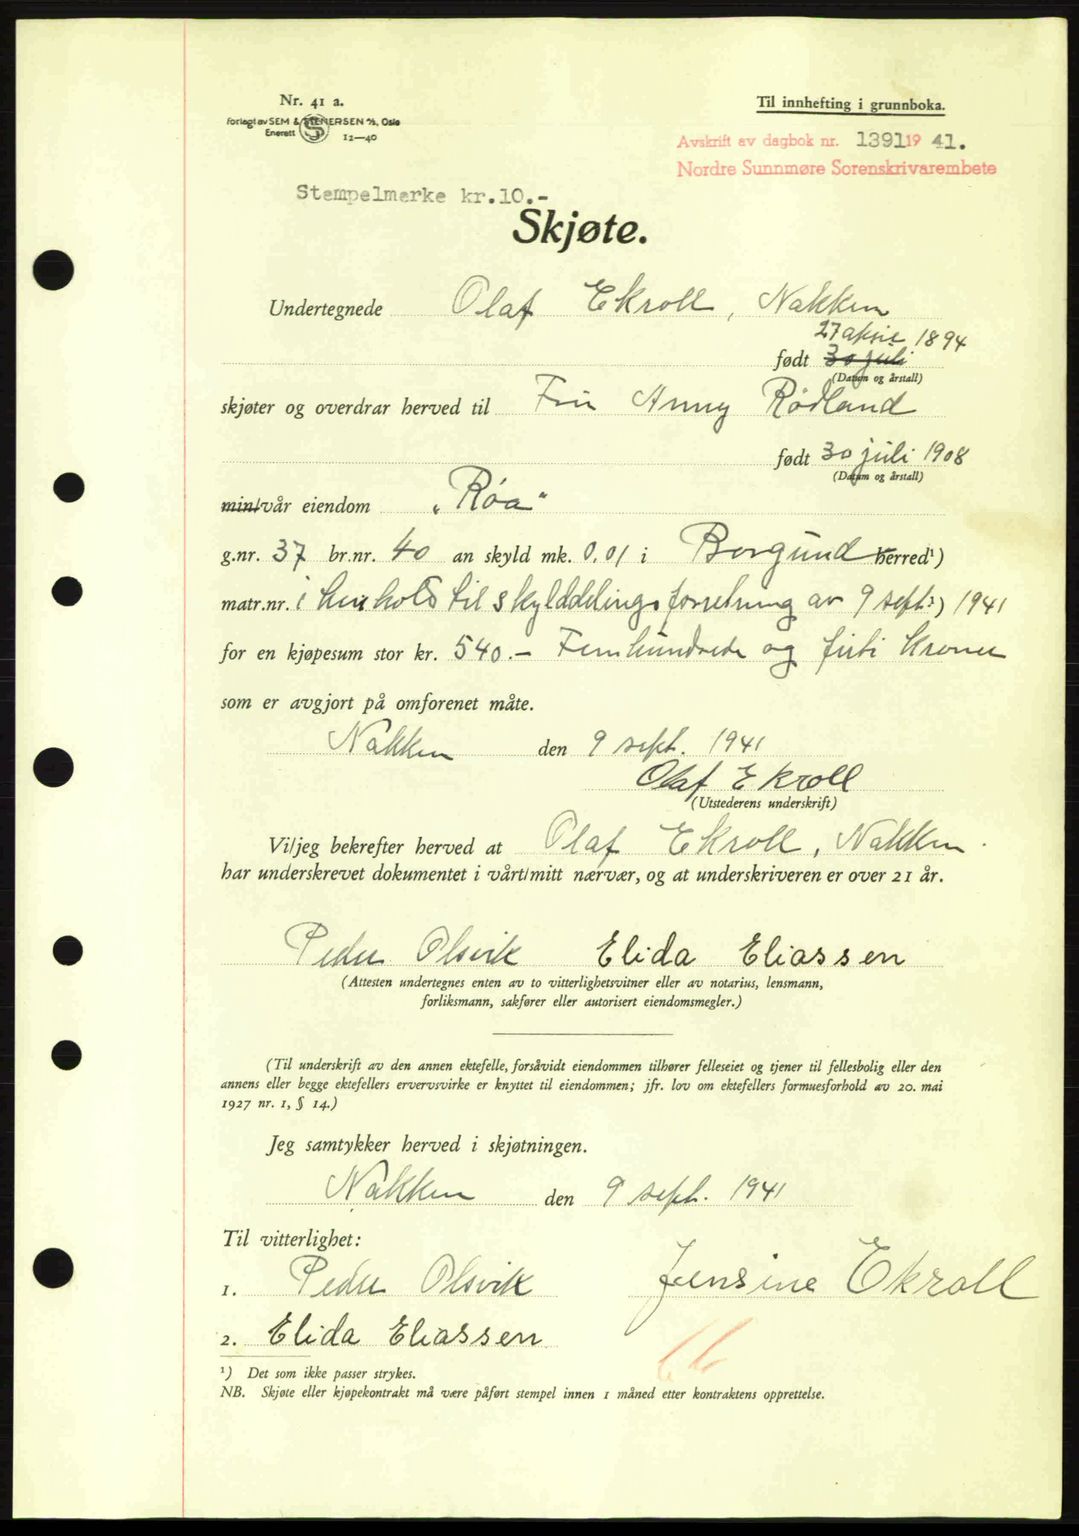 Nr. 41 a.
Forlagt av SEM & STENERSEN A/S, Oslo
Enerett 12—40
Til innhefting i grunnboka.
Avskrift av dagbok nr. 1391 19 41.
Nordre Sunnmøre Sorenskrivarembete
Stempelmerke kr.10.-
Skjøte.
Undertegnede Olaf Ekroll, Nakken
27 1894
født 30 juli
(Datum og årstall)
skjøter og overdrar herved til Fru Anny Rødland
født 30 juli 1908
(Datum og årstall)
min/vår eiendom „Røa“
g.nr. 37 br.nr. 40 an skyld mk. 0,01 i Borgund herred¹)
matr.nr. i henhold til skylddelingsforretning av 9 sept.²) 1941
for en kjøpesum stor kr. 540.- Femhundrede og firti kroner
som er avgjort på omforenet måte.
Nakken den 9 sept. 1941
Olaf Ekroll
(Utstederens underskrift)
Vi/jeg bekrefter herved at Olaf Ekroll, Nakken
har underskrevet dokumentet i vårt/mitt nærvær, og at underskriveren er over 21 år.
Peder Olsvik Elida Eliassen
(Attesten undertegnes enten av to vitterlighetsvitner eller av notarius, lensmann,
forliksmann, sakfører eller autorisert eiendomsmegler.)
(Til underskrift av den annen ektefelle, forsåvidt eiendommen tilhører felleseiet og tjener til fellesbolig eller den
annens eller begge ektefellers ervervsvirke er knyttet til eiendommen; jfr. lov om ektefellers formuesforhold av 20. mai
1927 nr. 1, § 14.)
Jeg samtykker herved i skjøtningen.
Nakken den 9 sept. 1941
Til vitterlighet:
1. Peder Olsvik Jensine Ekroll
2. Elida Eliassen
¹) Det som ikke passer strykes.
NB. Skjøte eller kjøpekontrakt må være påført stempel innen 1 måned etter kontraktens opprettelse.